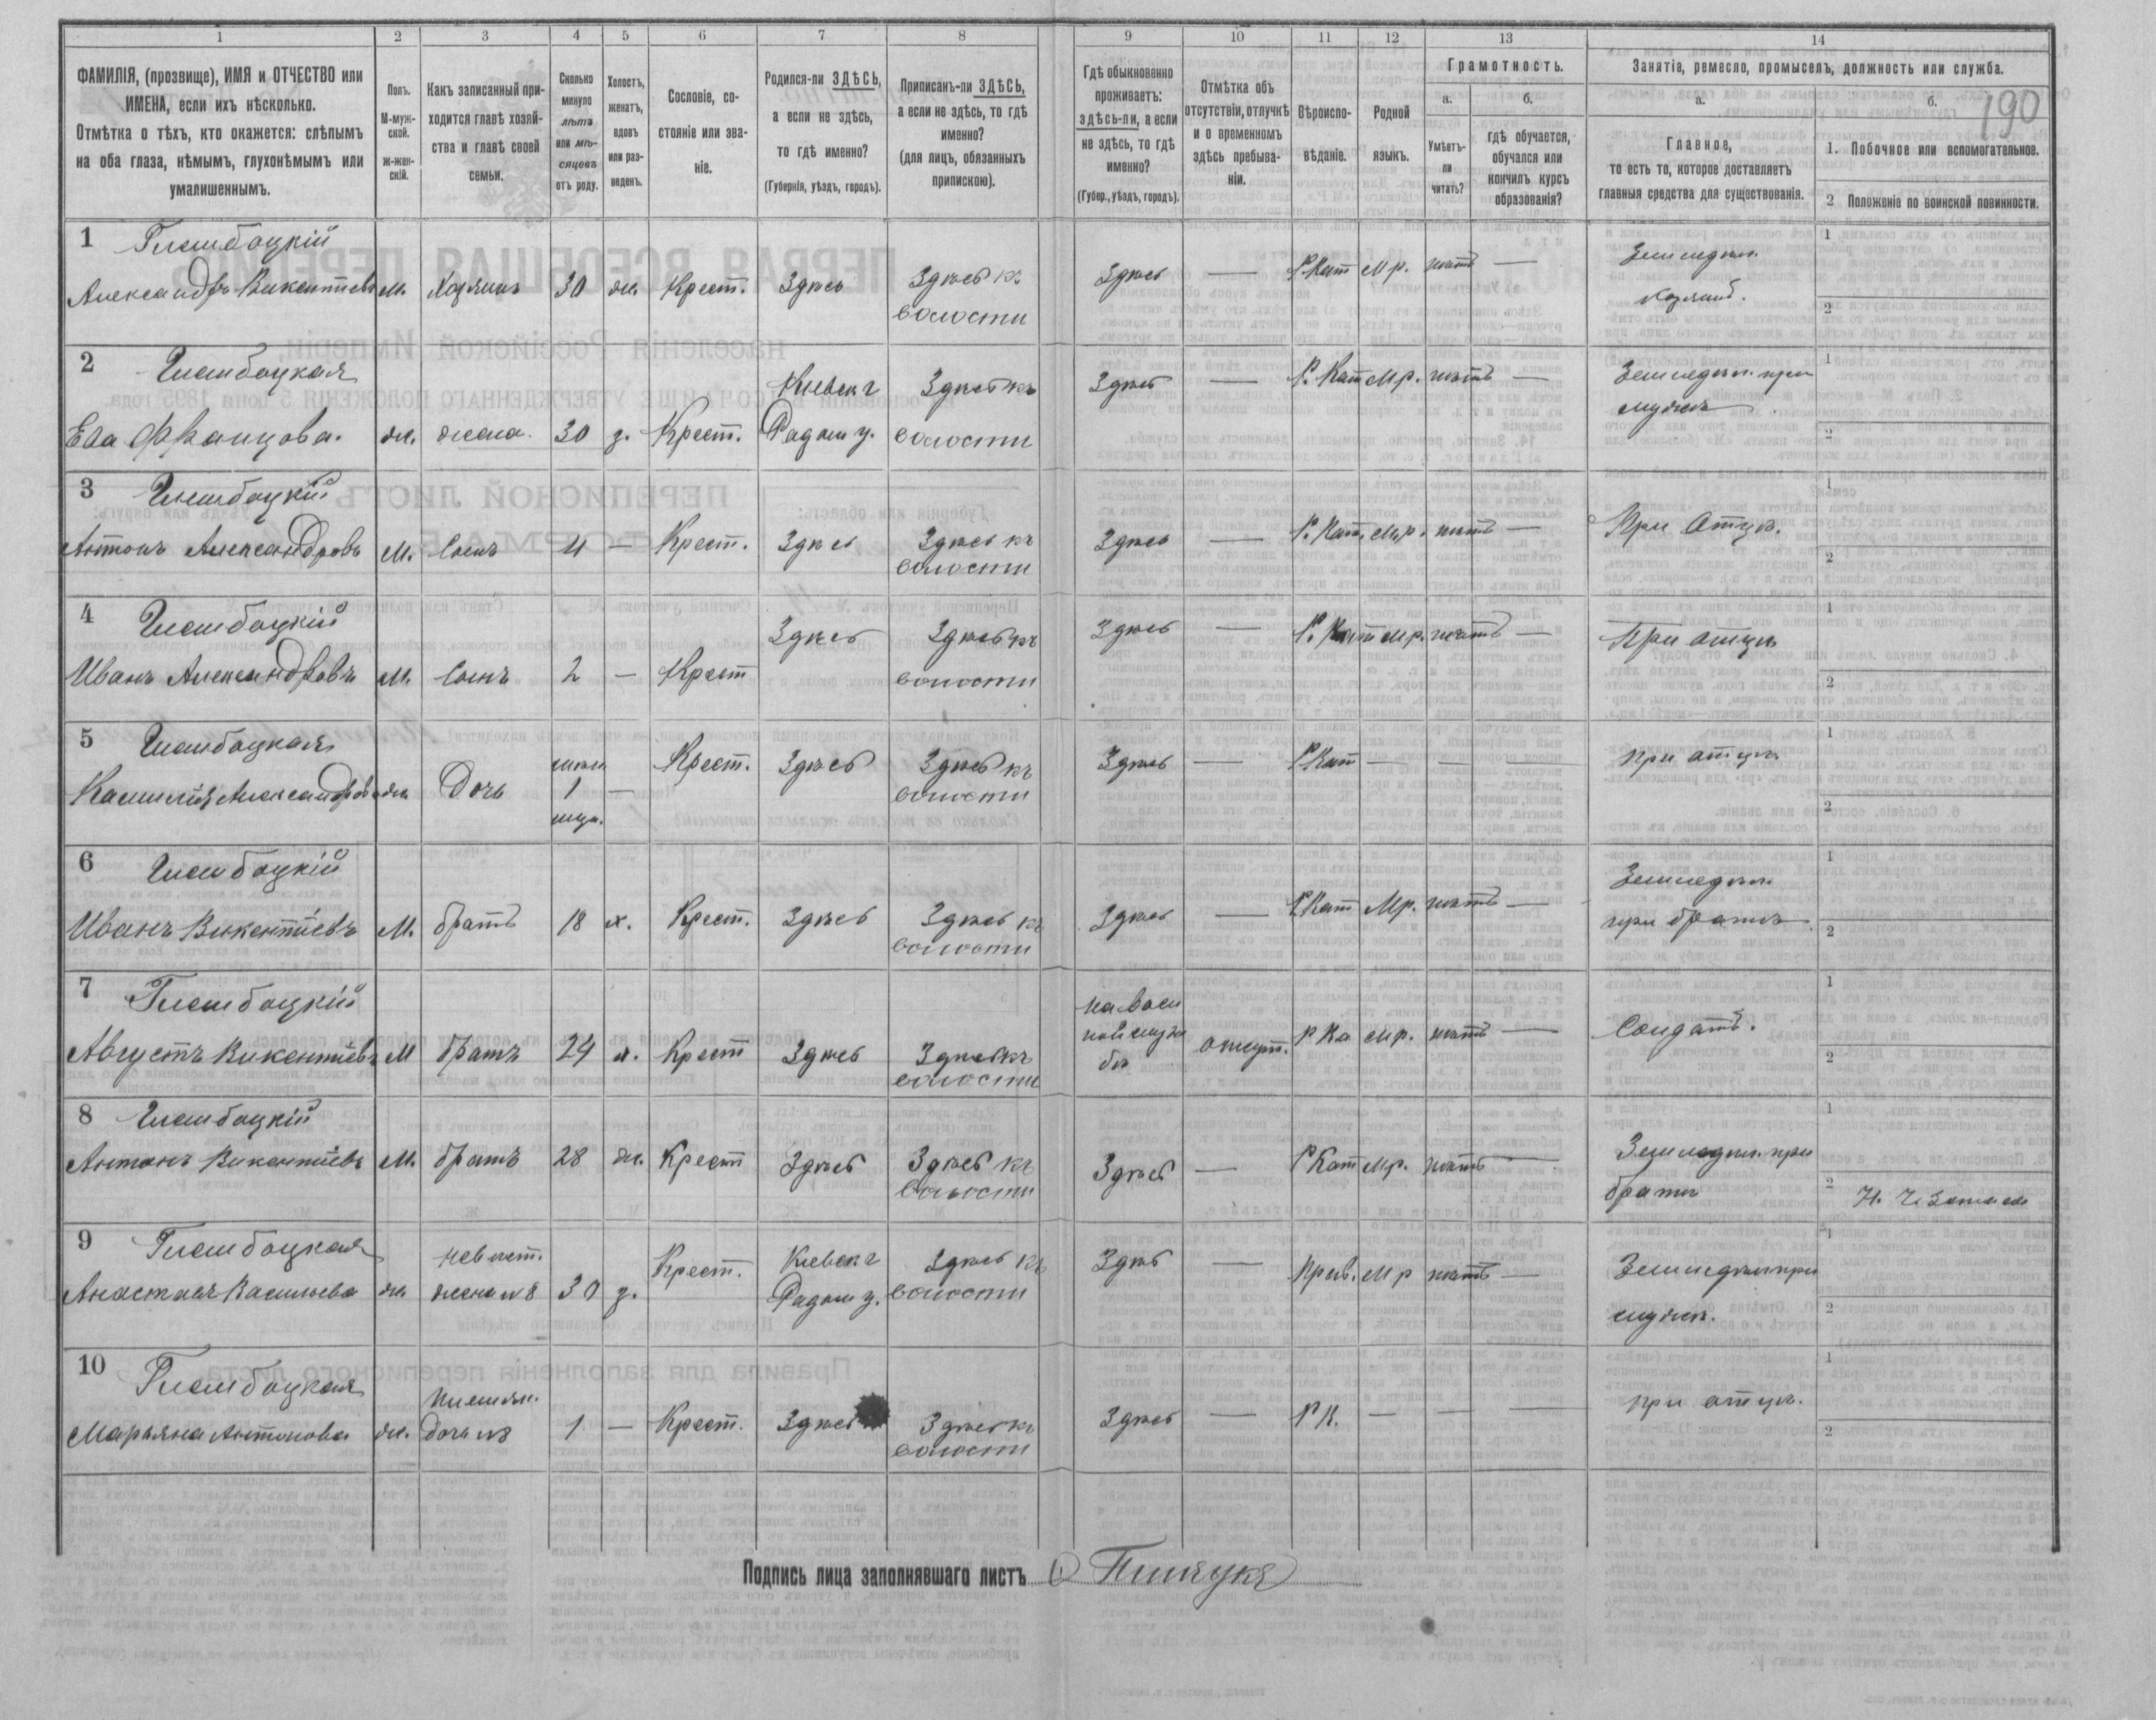 1 2 3 4 5 6 7 8 9 10 11 12 13 14
ФАМИЛІЯ, (прозвище), ИМЯ и ОТЧЕСТВО или
ИМЕНА, если ихъ нѣсколько.
Отмѣтка о тѣхъ, кто окажется: слѣпымъ
на оба глаза, нѣмымъ, глухонѣмымъ или
умалишеннымъ.
Полъ.
М-муж-
ской.
ж-жен-
скій.
Какъ записанный при-
ходится главѣ хозяй-
ства и главѣ своей
семьи.
Сколько
минуло
лѣтъ
или мѣ-
сяцевъ
отъ роду.
Холостъ,
женатъ,
вдовъ
или раз-
веденъ.
Сословіе, со-
стояніе или зва-
ніе.
Родился-ли ЗДѢСЬ,
а если не здѣсь,
то гдѣ именно?
(Губернія, уѣздъ, городъ).
Приписанъ-ли ЗДѢСЬ,
а если не здѣсь, то гдѣ
именно?
(для лицъ, обязанныхъ
припискою).
Гдѣ обыкновенно
проживаетъ:
здѣсь-ли, а если
не здѣсь, то гдѣ
именно?
(Губер., уѣздъ, городъ).
Отмѣтка объ
отсутствіи, отлучкѣ
и о временномъ
здѣсь пребыва-
ніи.
Вѣроиспо-
вѣданіе.
Родной
языкъ.
Грамотность.
а.
Умѣетъ-
ли
читать?
б.
гдѣ обучается,
обучался или
кончилъ курсъ
образованія?
Занятіе, ремесло, промыселъ, должность или служба.
а.
Главное,
то есть то, которое доставляетъ
главныя средства для существованія.
б.
190
1. Побочное или вспомогательное.
2 Положеніе по воинской повинности.
1 Глембоцкій
Александръ Викентіевъ м. Хозяинъ 30 ж. Крест. Здѣсь Здѣсь къ
волости
Здѣсь — Р.Кат мр. нѣтъ — Земледѣл.
хозяинъ.
1
2
2 Глембоцкая
Ева Францова. ж. жена. 30 з. Крест. Кіевск г
Радом у. Здѣсь къ
волости
Здѣсь — Р. Кат мр. нѣтъ — Земледѣл. при
мужѣ
1
2
3 Глембоцкій
Антонъ Александровъ м. Сынъ 4 — Крест. Здѣсь Здѣсь къ
волости
Здѣсь — Р. Кат. мр. нѣтъ — При отцѣ.
1
2
4 Глембоцкій
Иванъ Александровъ м. Сынъ 2 — Крест Здѣсь Здѣсь къ
волости
Здѣсь — Р. Кат мр. нѣтъ — При отцѣ
1
2
5 Глембоцкая
Камилія Александрова ж. Дочь 1
мѣс. — Крест. Здѣсь Здѣсь къ
волости
Здѣсь — Р.Кат — — — При отцѣ
1
2
6 Глембоцкій
Иванъ Викентіевъ м. братъ 18 х. Крест. Здѣсь Здѣсь къ
волости
Здѣсь — Р.Кат Мр. нѣтъ — Земледѣл.
при братѣ
1
2
7 Глембоцкій
Августъ Викентіевъ М братъ 24 х. Крест Здѣсь Здѣсь къ
волости
на воен
ной служ
бѣ
отсут. Р Ка мр. нѣтъ — Солдатъ.
1
2
8 Глембоцкій
Антонъ Викентіевъ м. братъ 28 ж. Крест Здѣсь Здѣсь къ
волости
Здѣсь — Р Кат мр. нѣтъ — Земледѣл. при
братѣ
1
2
9 Глембоцкая
Анастасія Васильева ж. невѣст.
жена № 8 30 з. Крест. Кіевск г
Радом у. Здѣсь къ
волости
Здѣсь — Прав. мр нѣтъ — Земледѣл при
мужѣ.
1
2
10 Глембоцкая
Марьяна Антонова ж. племян.
Дочь № 8 1 — Крест. Здѣсь Здѣсь къ
волости
Здѣсь — Р К. — — — При отцѣ.
1
2
Подпись лица заполнявшаго листъ